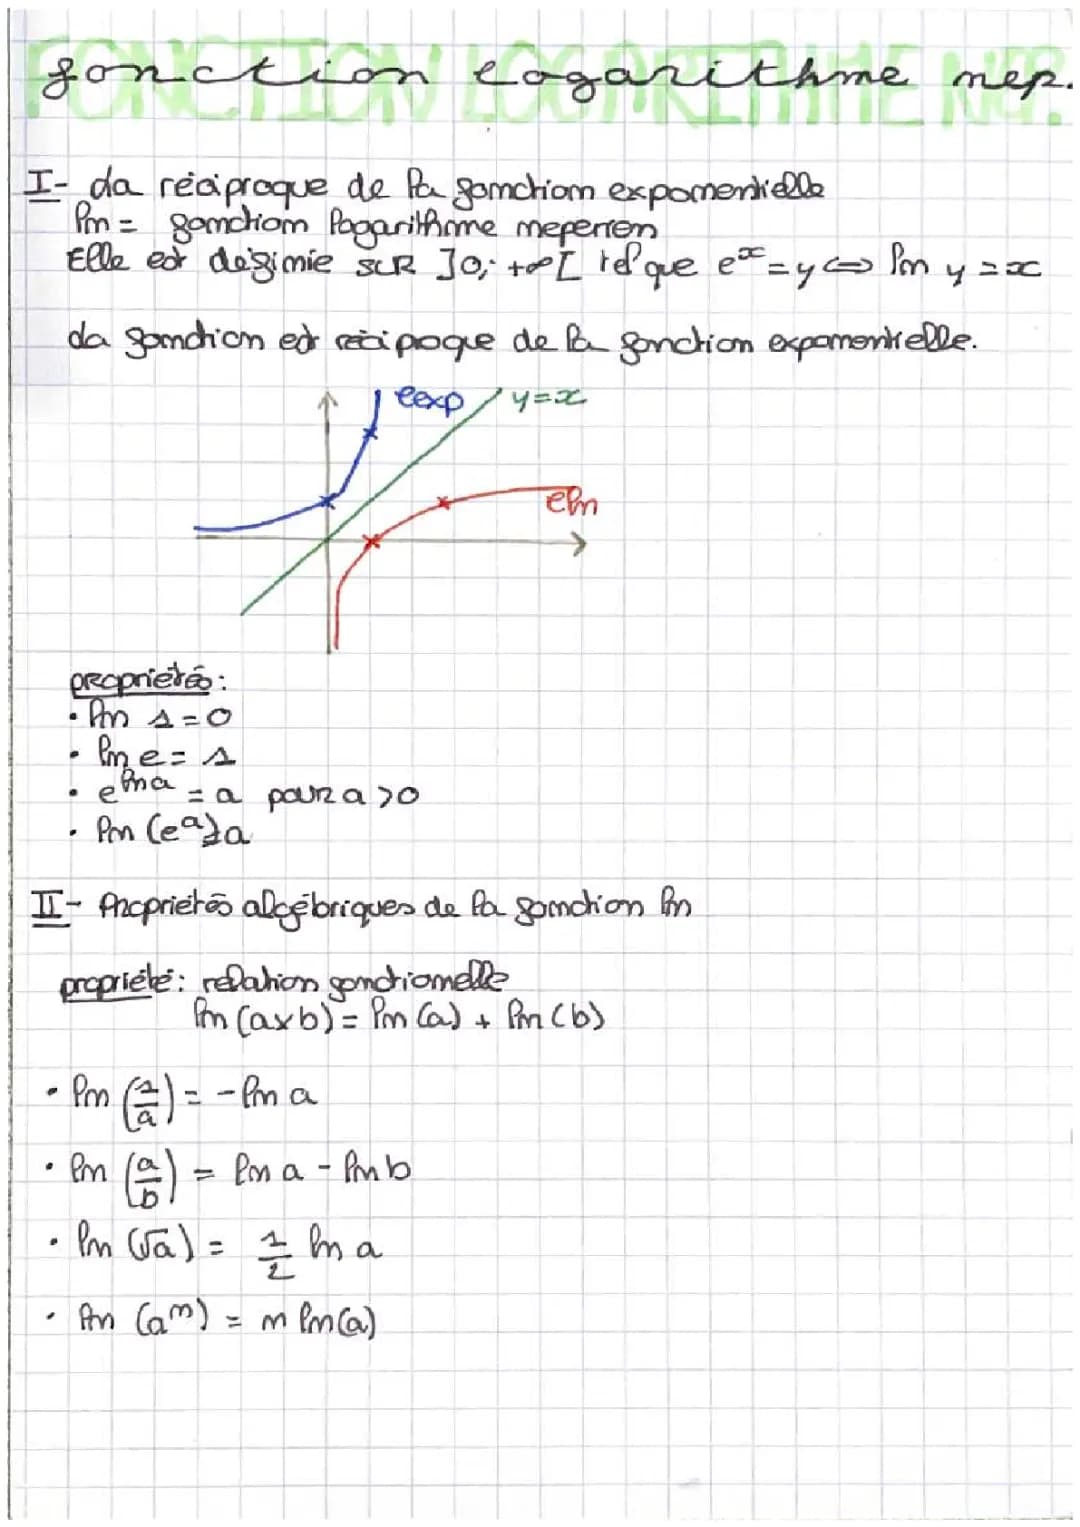 FONCTION LOGARITHME NEP.
fonction logarithme nep.
I- La réciproque de la fonction exponentielle
ln = fonction logarithme neperien
Elle est définie SUR ]0; +∞[ tel que eˣ = y ⇔ ln y = x
La fonction est réciproque de la fonction exponentielle.
Cexp
y=x
Cln
propriétés:
• ln 1 = 0
• ln e = 1
• e^(ln a) = a pour a > 0
• ln (e^a) = a
II- Propriétés algébriques de la fonction ln
propriété: relation fonctionnelle
ln (a×b) = ln (a) + ln (b)
• ln (1/a) = - ln a
• ln (a/b) = ln a - ln b
• ln (√a) = 1/2 ln a
• ln (aⁿ) = n ln(a)